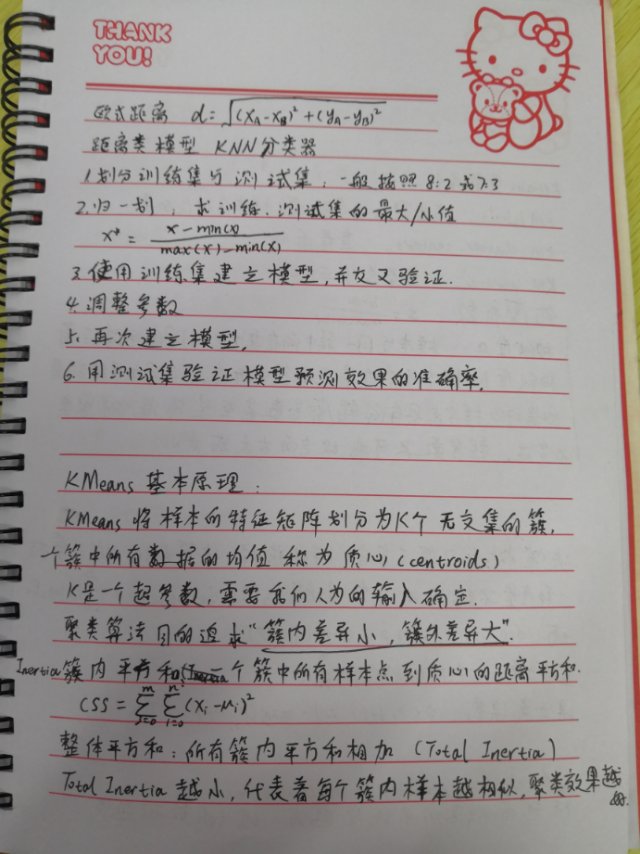 THANK
YOU!
欧式距离 d = √(xA-xB)² + (yA-yB)²
距离类模型 KNN分类器
1.划分训练集与测试集,一般按照8:2或7:3
2.归一划,求训练、测试集的最大/小值
x* = x-min(x) / max(x)-min(x)
3.使用训练集建立模型,并交叉验证.
4.调整参数
5.再次建立模型,
6.用测试集验证模型预测效果的准确率,
KMeans 基本原理:
KMeans 将样本的特征矩阵划分为K个无交集的簇,
个簇中所有数据的均值 称为质心(centroids)
K是一个超参数,需要我们人为的输入确定.
聚类算法目的追求“簇内差异小,簇外差异大”.
Inertia 簇内平方和 一个簇中所有样本点到质心的距离平方和.
CSS = ∑(j=0, m) ∑(i=0, n) (xi-μi)²
整体平方和:所有簇内平方和相加(Total Inertia)
Total Inertia 越小,代表着每个簇内样本越相似,聚类效果越